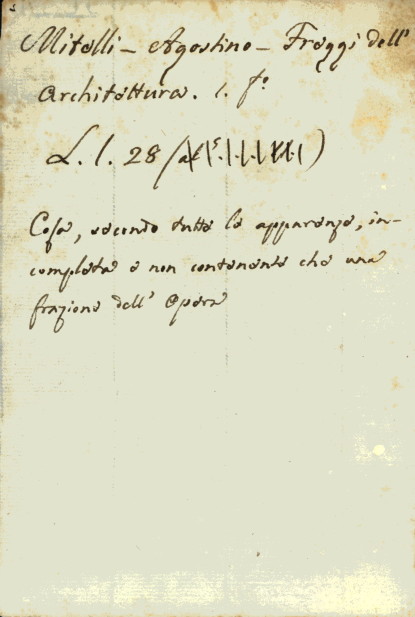 Mitelli - Agostino - Freggi dell'
Architettura. 1. fo.
L. l. 28 (al
Cosa, secondo tutte le apparenze, in-
completa e non contenente che una
frazione dell' Opera